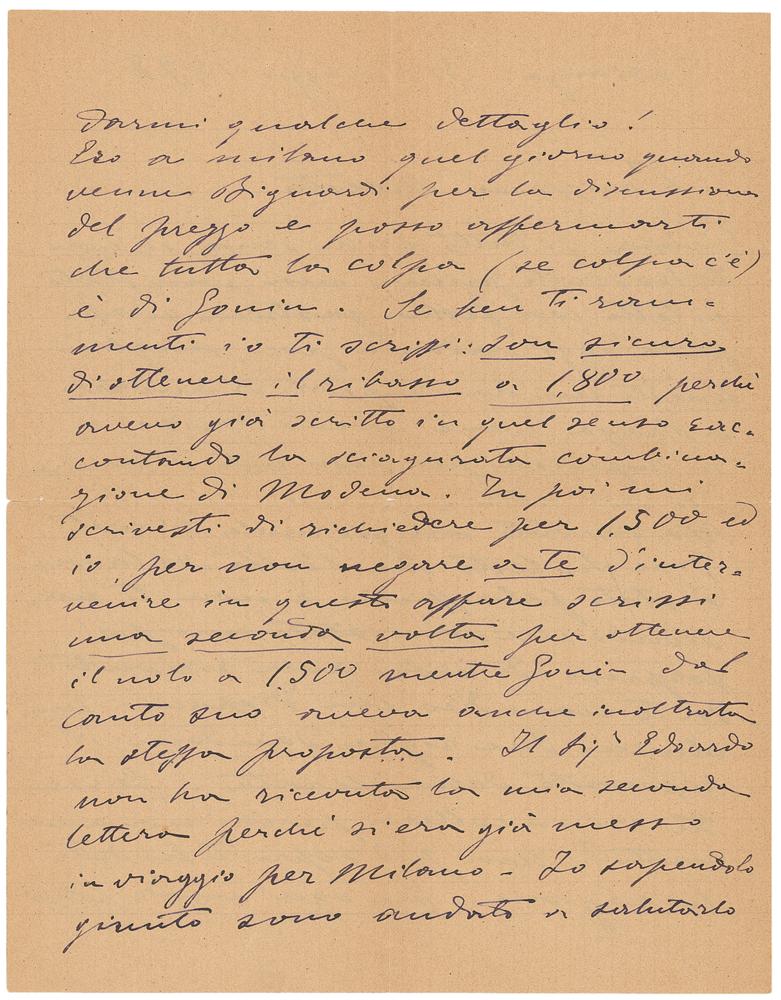 darmi qualche dettaglio!
Ero a milano quel giorno quando
venne Bignardi per la discussione
del prezzo e posso affermarti
che tutta la colpa (se colpa c'è)
è di Gonin. Se ben ti ram=
menti io ti scrissi: son sicuro
di ottenere il ribasso a 1,800 perchè
avevo già scritto in quel senso rac=
contando la sciagurata combina=
zione di Modena. Tu poi mi
scrivesti di richiedere per 1.500 ed
io, per non negare a te d'inter=
venire in questo affare scrissi
una seconda volta per ottenere
il nolo a 1.500 mentre Gonin dal
canto suo aveva anche inoltrata
la stessa proposta. Il Sigr Edoardo
non ha ricevuta la mia seconda
lettera perchè si era già messo
in viaggio per Milano - Io sapendolo
giunto sono andato a salutarlo